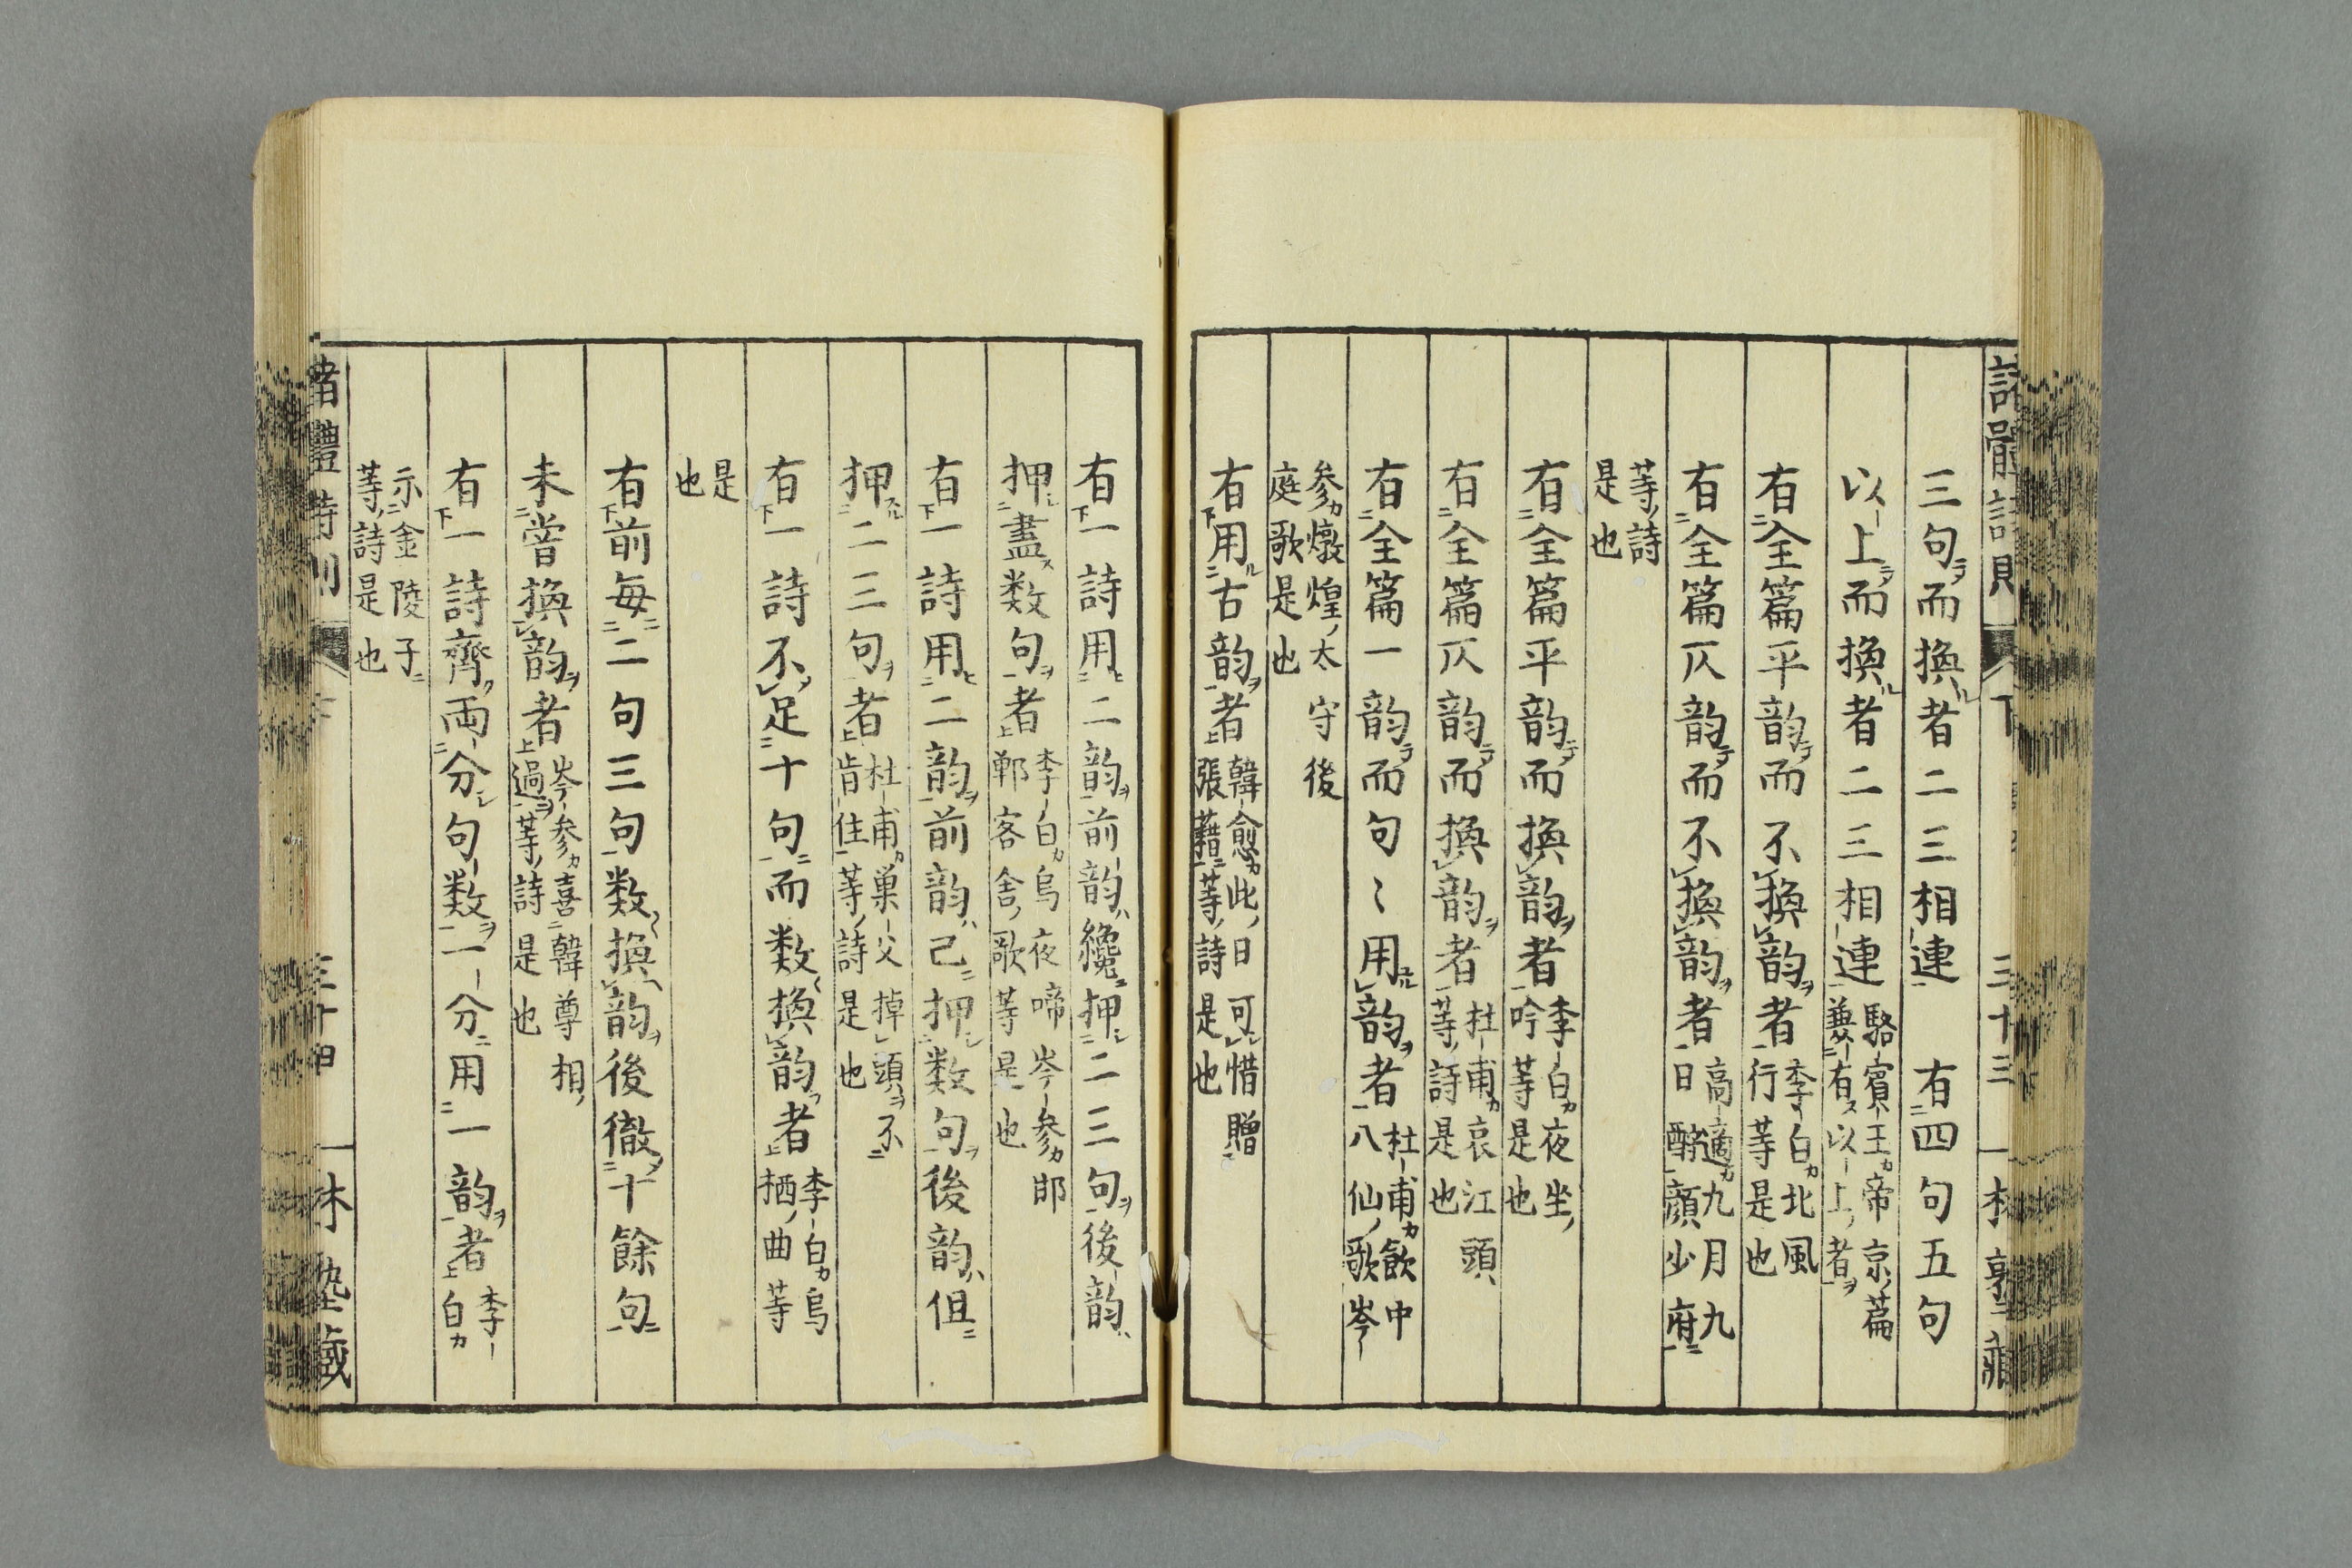 三句而換者二三相連　有四句五句
以上而換者二三相連駱賓王帝京篇
兼有以上者
有全篇平韵而不換韵者李白北風
行等是也
有全篇仄韵而不換韵者高適九月九
日酧顔少府
等詩
是也
有全篇平韵而換韵者李白夜坐
吟等是也
有全篇仄韵而換韵者杜甫哀江頭
等詩是也
有全篇一韵而句〻用韵者杜甫飲中
八仙歌岑
参燉煌太守後
庭歌是也
有用古韵者韓愈此日可惜贈
張藉等詩是也
有一詩用二韵前韵纔押二三句後韵
押盡数句者李白烏夜啼岑参邯
鄲客舎歌等是也
有一詩用二韵前韵已押数句後韵但
押二三句者杜甫巣父掉頭不
肯住等詩是也
有一詩不足十句而数換韵者李白烏
栖曲等
是
也
有前毎二句三句数換韵後徹十餘句
未嘗換韵者岑参喜韓尊相
過等詩是也
有一詩齊両分句数一分用一韵者李
白
示金陵子
等詩是也
三十三
三十四